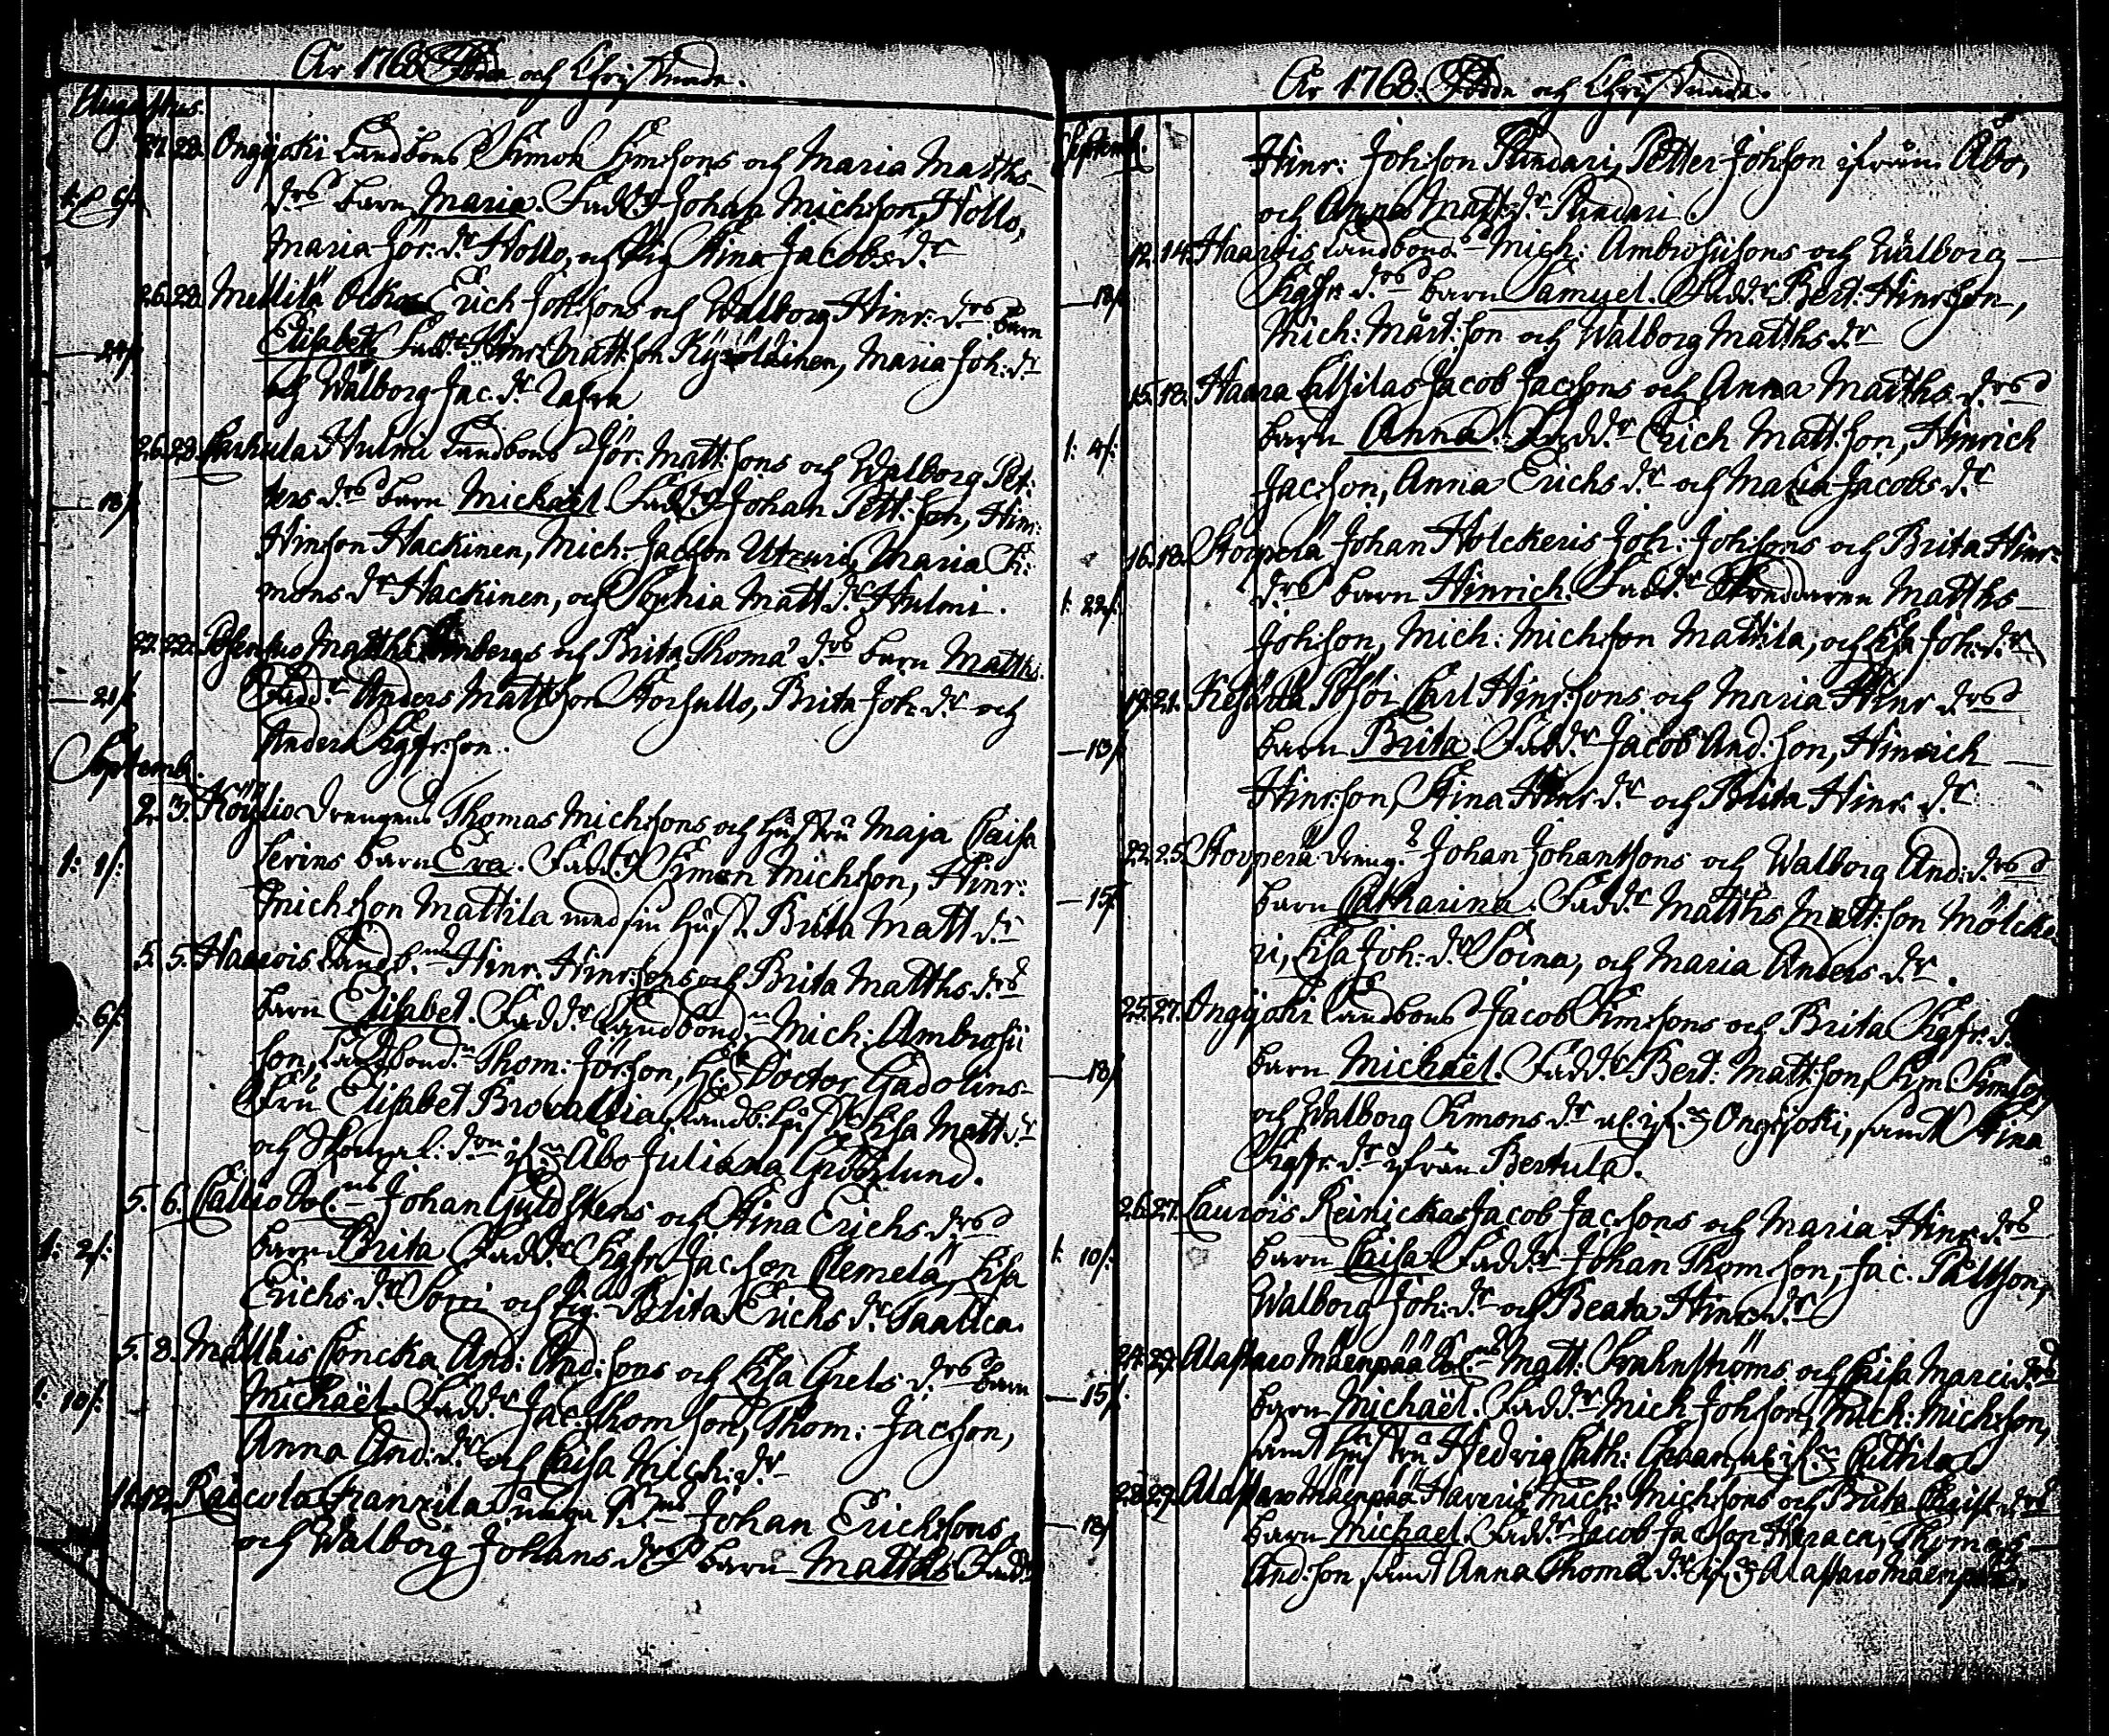 År 1768 Födde och Christnade.
Augustus.
21. 28. Ongijoki Landbons Simon Simsons och Maria Matths
drs barn Maria. Fadd:r Johan Michson, Hollo,
Maria Jör: dr Hollo, och Pig. Stina Jacobs dr
26. 28. Mellilä Ockas Erich Johsons och Walborg Hinr: drs barn
24/.
Elisabeth. Fadd:r Hinr Mattson Kyrölainen, Maria Joh: dr
och Walborg Jac. dr
26. 28. Carhula Hulmi Landbons Jör. Mattsons och Walborg Pet:
18/.
ters drs barn Michaël. Fadd:r Johan Pett: son, Hinr:
Hinrson Hackinen, Mich: Jacson Utzuri, Maria Si:
mons dr Hackinen, och Sophia Matt dr Hulmi.
27. 28. Matths och Brita Thomæ drs barn Matths.
21/.
Fadd:r Anders Mattson Storsullo, Brita Joh. dr och
Anders Sigfr:son.
Septemb.
2. 3. Köyliö Drengens Thomas Michsons och hustru Maja Caisa
1: 1/:
barn Eva. Fadd:r Simon Michson, Hinr:
Michson Mattila med sin hust. Brita Matt dr
5. 5. Haarois Landb:ns Hinr. Hinr:sons och Brita Matths drs
6/.
barn Elisabet. Fadd:r Landbond:n Mich: Ambrosii
son, Landbond:n Thom: Jörson, H:r Doctor Gadolins
Fru Elisabet Browallia, Landb: hust. Lisa Matt dr
och Åbo Juliana
5. 6. Callio Sol:ns Johan Guldstens och Stina Erichs drs
1: 2/:
barn Brita Fadd:r Sigfr Jacson Clemelä, Lisa
Erichs dr Sorri och Pig. Brita Erichs dr
5. 8. Mälläis Concka And: And: sons och Lisa Grels drs barn
1: 10/:
Michaël. Fadd:r Jac: Thomson, Thom: Jacson,
Anna And: dr och Caisa Mich: dr
11. 12. Raicola Franzila unga B:ns Johan Erichsons
och Walborg Johans drs barn Matths Fadd:r
År 1768. Födde och Christnade.
Septemb.
Hinr: Johson Rindari, Petter Johson ifrån Åbo,
och Anna Matts dr Rindari.
12. 14. Haarois Landbond:s Mich: Ambrosiisons och Walborg
18/.
Sigfr. drs barn Samuel. Fadd:r Bert: Hinrson,
Mich: Märt:son och Walborg Matths dr
15. 18. Haara Jacob Jacsons och Anna Matths drs
1: 4/:
barn Anna. Fadd:r Erich Matt:son, Hinrich
Jacson, Anna Erichs dr och Maria Jacobs dr
16. 18. Storperä Johan Holckeris Joh: Johsons och Brita Hinr:
1: 22/.
drs barn Hinrich. Fadd:r Skreddaren Matths
Johson, Mich: Michson Mattila, och Lisa Joh: dr
19. 21. Carl Hinr:sons och Maria Hinr drs
13/.
barn Brita. Fadd:r Jacob And: son, Hinrich
Hinrson, Stina Hinr dr och Brita Hinr: dr
22. 25. Storperä dreng:s Johan Johanssons och Walborg And: drs
15/.
barn Catharina. Fadd:r Matths Matt:son Mölcke
ri, Lisa Joh: dr Soina, och Maria Anders dr.
25. 27. Ongijoki Landbons Jacob Simsons och Brita Sigfr:
18/.
barn Michaël. Fadd:r Bert: Mattson, Sim: Simson
och Walborg Simons dr Ongijoki, samt Stina
Sigfr. dr ifrån Bertula.
26. 27. Laurois Reinickas Jacob Jacsons och Maria Hinr. drs
1: 10/:
barn Caisa. Fadd:r Johan Thomson, Jac. Pällson,
Walborg Joh: dr och Beata Hinr: dr
24. 29. Alastaro Mäenpää Sol:ns Matt: och Caisa Marci drs
15/.
barn Michaël. Fadd:r Mich Johson, Mich: Michson,
samt hustru Hedvig Cath: Graan,
28. 29. Alastaro Mäenpää Haveris Mich: Michsons och Brita Christ drs
18/.
barn Michael. Fadd:r Jacob Jacson, Thomas
And:son samt Anna Thomæ dr Alastaro Mäenpää.